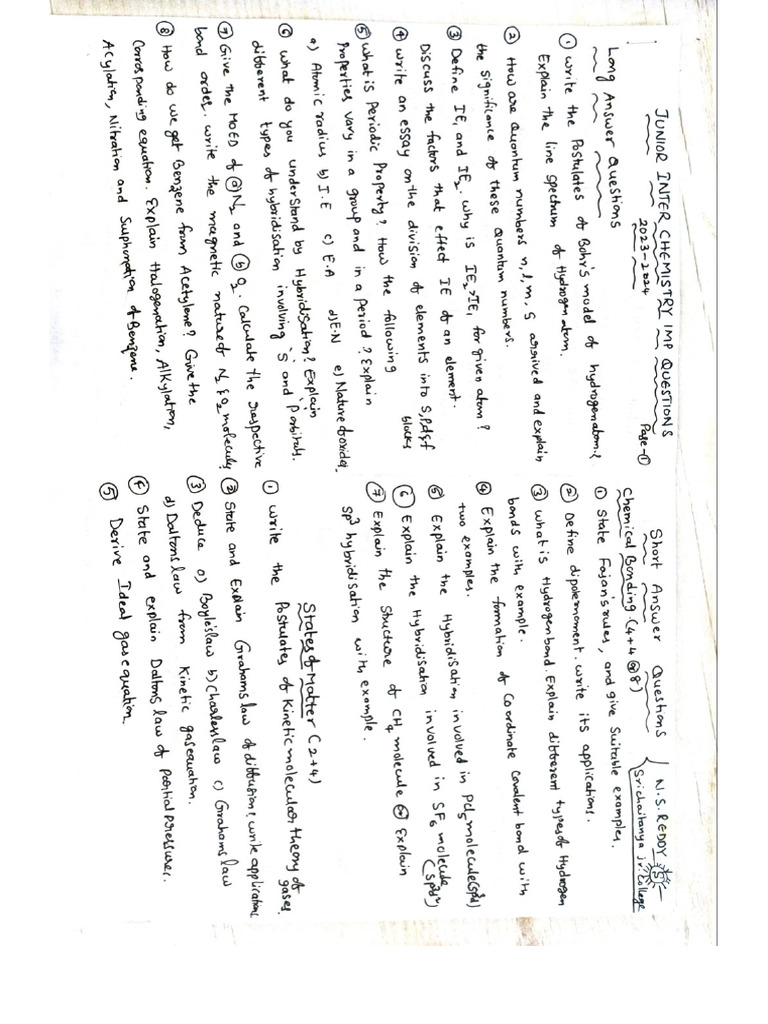 JUNIOR INTER CHEMISTRY IMP QUESTIONS
2023-2024
Page-①
Long Answer Questions
① Write the Postulates of Bohr's model of hydrogen atom?
Explain the line spectrum of Hydrogen atom.
② How are Quantum numbers n, l, m, s arrived and explain
the significance of these Quantum numbers.
③ Define IE1 and IE2. Why is IE2>IE1 for given atom?
Discuss the factors that effect IE of an element.
④ Write an essay on the division of elements into S,P,d,f
blocks
⑤ What is Periodic Property? How the following
Properties vary in a group and in a period? Explain
a) Atomic radius b) I.E c) E.A d) E.N e) Nature of oxides.
⑥ What do you understand by Hybridisation? Explain
different types of hybridisation involving 's' and 'p' orbitals.
⑦ Give the MOED of ⓐ N2 and ⓑ O2. Calculate the respective
bond order. Write the magnetic nature of N2 & O2 molecules?
⑧ How do we get Benzene from Acetylene? Give the
Corresponding equation. Explain Halogenation, Alkylation,
Acylation, Nitration and Sulphonation of Benzene.
Short Answer Questions
N.S. REDDY
Srichaitanya jr. College
Chemical Bonding (4+4 or 8)
① State Fajan's rules, and give suitable examples.
② Define dipolemoment. Write its applications.
③ What is Hydrogen bond. Explain different types of Hydrogen
bonds with example.
④ Explain the formation of Coordinate Covalent bond with
two examples.
⑤ Explain the Hybridisation involved in PCl5 molecule (sp3d)
⑥ Explain the Hybridisation involved in SF6 molecule
(sp3d2)
⑦ Explain the structure of CH4 molecule or Explain
sp3 hybridisation with example.
States of Matter (2+4)
① Write the Postulates of Kinetic molecular theory of
gases
② State and Explain Grahams law of diffusion? write applications
③ Deduce a) Boyle's law b) Charles law c) Grahams law
d) Daltons law from Kinetic gas equation.
④ State and explain Daltons law of partial pressures.
⑤ Derive Ideal gas equation.